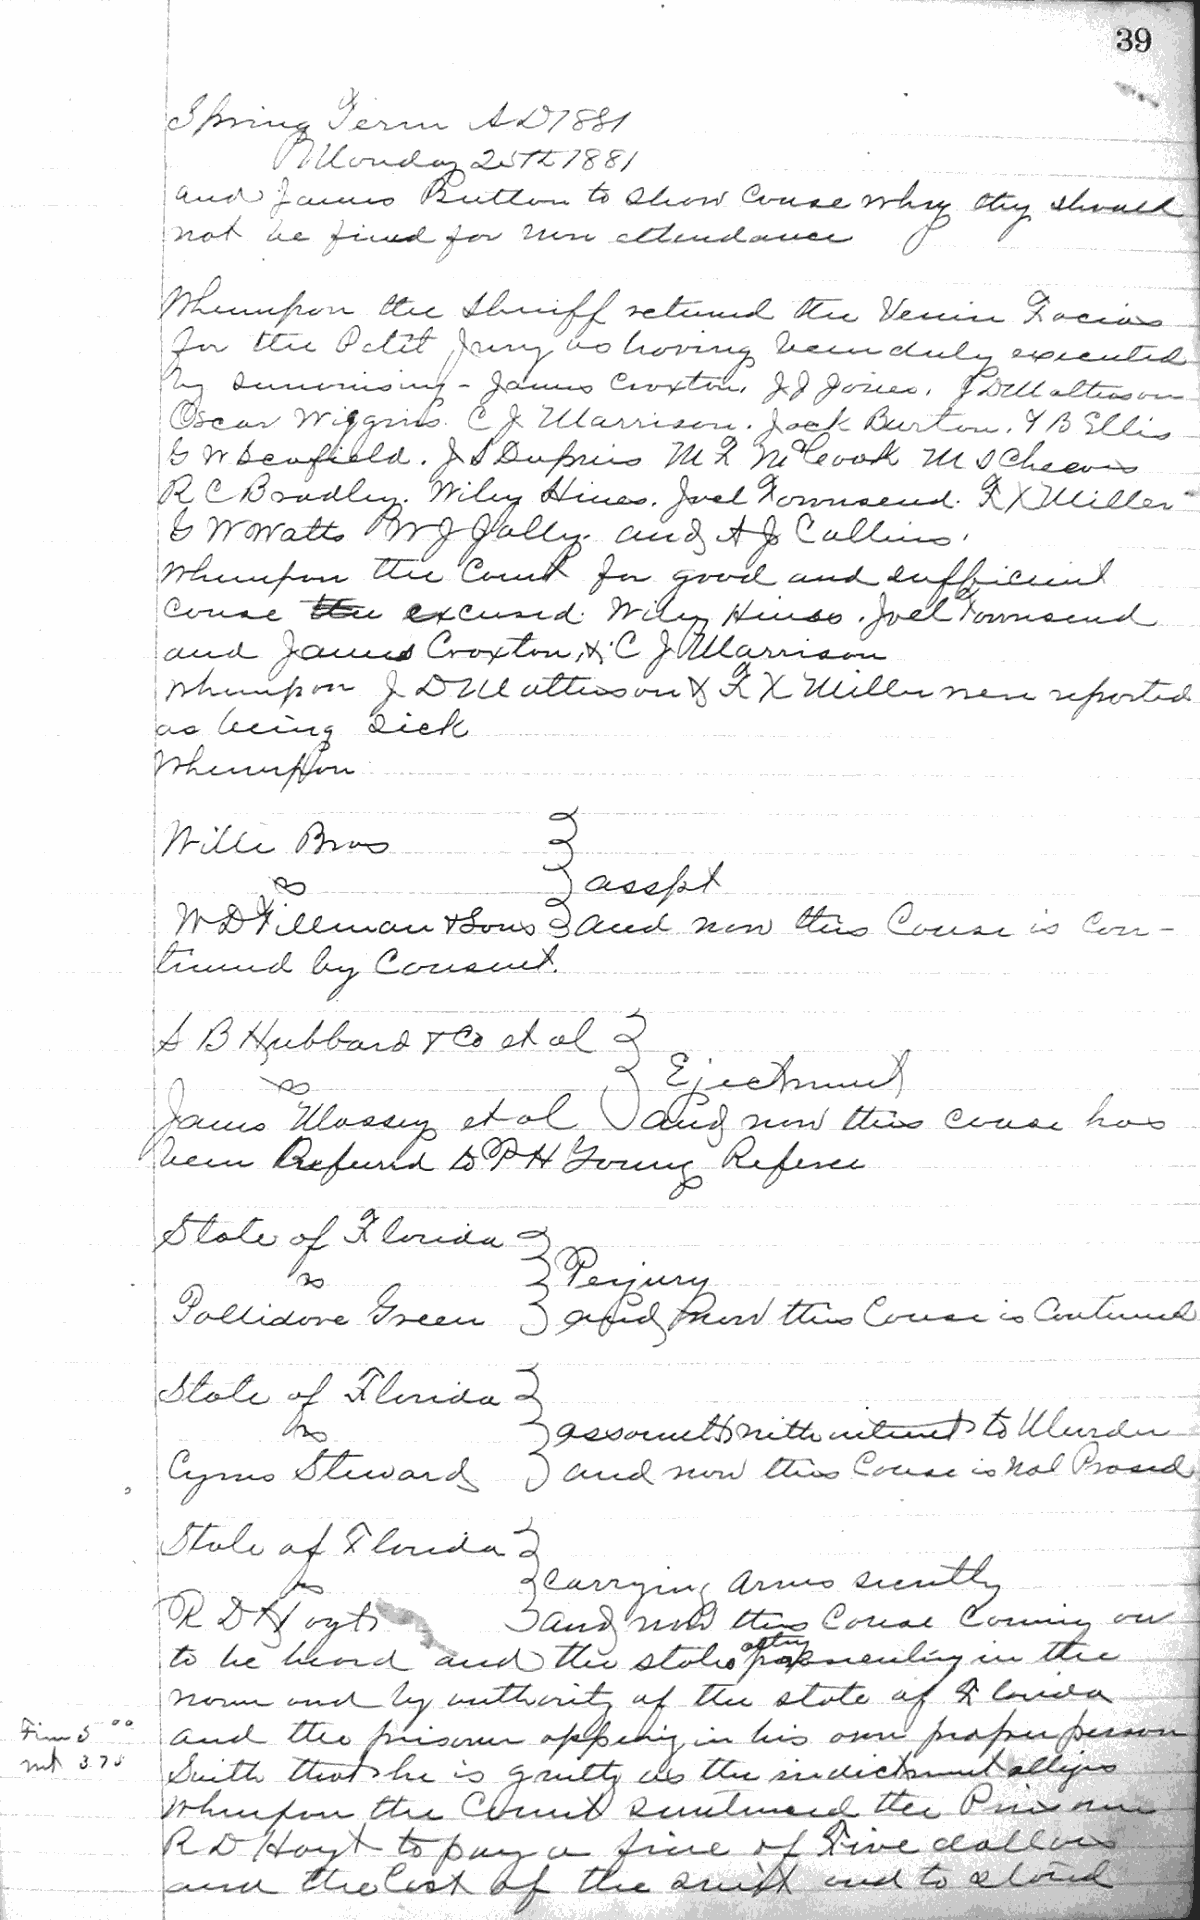 39
Spring Term AD 1881
Monday 25th 1881
and James Button to Show Cause why they should
not be fined for non attendance
Whereupon the Sheriff returned the Venire Facias
for the Petit Jury as having been duly executed
by summonsing - James Croxton, J J Jones, J D Matterson
Oscar Wiggins. C J Marrison. Jack Burton. T B Ellis
G W Scofield. J S Dupries M F McCook M S Cheaves
R C Bradley. Wiley Hines. Joel Townsend. F X Miller
G W Watts W J Jolly. and A J Collins.
Whereupon the Court for good and sufficient
cause the excused Wiley Hines. Joel Townsend
and James Croxton, & C J Marrison
Whereupon J D Matterson & F X Miller were reported
as being sick
Whereupon
Wille Bros
vs
asspt
W D Tillman & Sons and now this Cause is Con-
tinued by Consent.
S B Hubbard & Co et al
Ejectment
vs
James Massey et al and now this cause has
been Refered to P H Young Referee
State of Florida
vs
Perjury
Pollidore Green and now this Cause is Continued
State of Florida
vs
assault with intent to Murder
Cyrus Steward and now this Cause is Nol Prosed
State of Florida
vs
carrying arms secretly
R D Hoyt and now this Cause Coming on
to be heard and the state atty in the
name and by authority of the state of Florida
Fine 5 00 and the prisoner in his own proper person
3.75 Saith that he is guilty as the indictment
Whereupon the Court sentenced the Prisoner
R D Hoyt to pay a fine of Five dollars
and the Cost of the suit and to stand